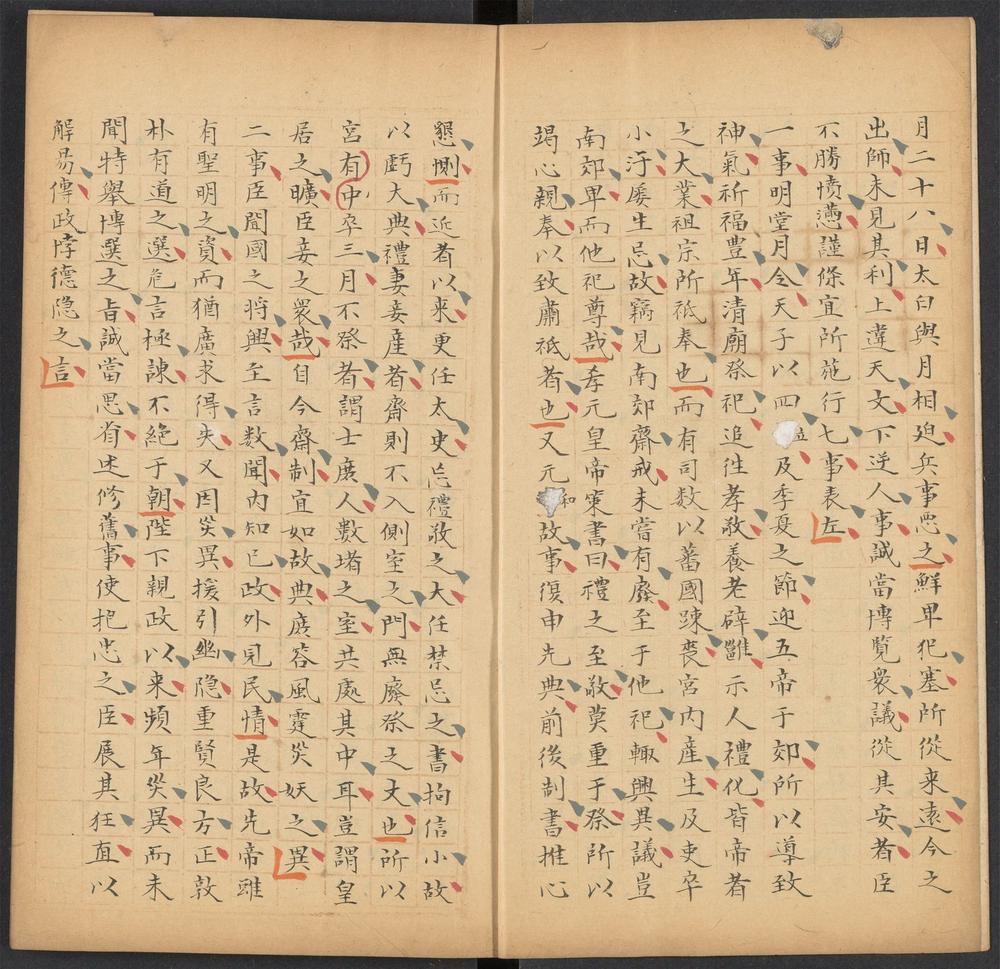 月二十八日太白與月相廹兵事惡之鮮卑犯塞所從来遠今之
出師未見其利上違天文下逆人事誠當博覽衆議從其安者臣
不勝憤懣謹條宜所施行七事表左
一事明堂月令天子以四立及季夏之節迎五帝于郊所以導致
神氣祈福豊年清廟祭祀追徃孝敬養老辟雝示人禮化皆帝者
之大業祖宗所祗奉也而有司数以蕃國踈喪宮内產生及吏卒
小汙屢生忌故竊見南郊齋戒未嘗有廢至于他祀輙興異議豈
南郊卑而他祀尊哉孝元皇帝策書曰禮之至敬莫重于祭所以
竭心親奉以致肅祗者也又元和故事復申先典前後制書推心
懇惻而近者以来更任太史忘禮敬之大任禁忌之書拘信小故
以虧大典禮妻妾產者齋則不入側室之門無廢祭之文也所以
宮有中卒三月不祭者謂士庻人數堵之室共處其中耳豈謂皇
居之曠臣妾之衆哉自今齋制宜如故典庻荅風霆災妖之異
二事臣聞國之将興至言數聞内知已政外見民情是故先帝雖
有聖明之資而猶廣求得失又因災異援引幽隐重賢良方正敦
朴有道之選危言極諫不絕于朝陛下親政以来頻年災異而未
聞特舉博選之旨誠當思省述修舊事使抱忠之臣展其狂直以
解易傳政悖德隐之言